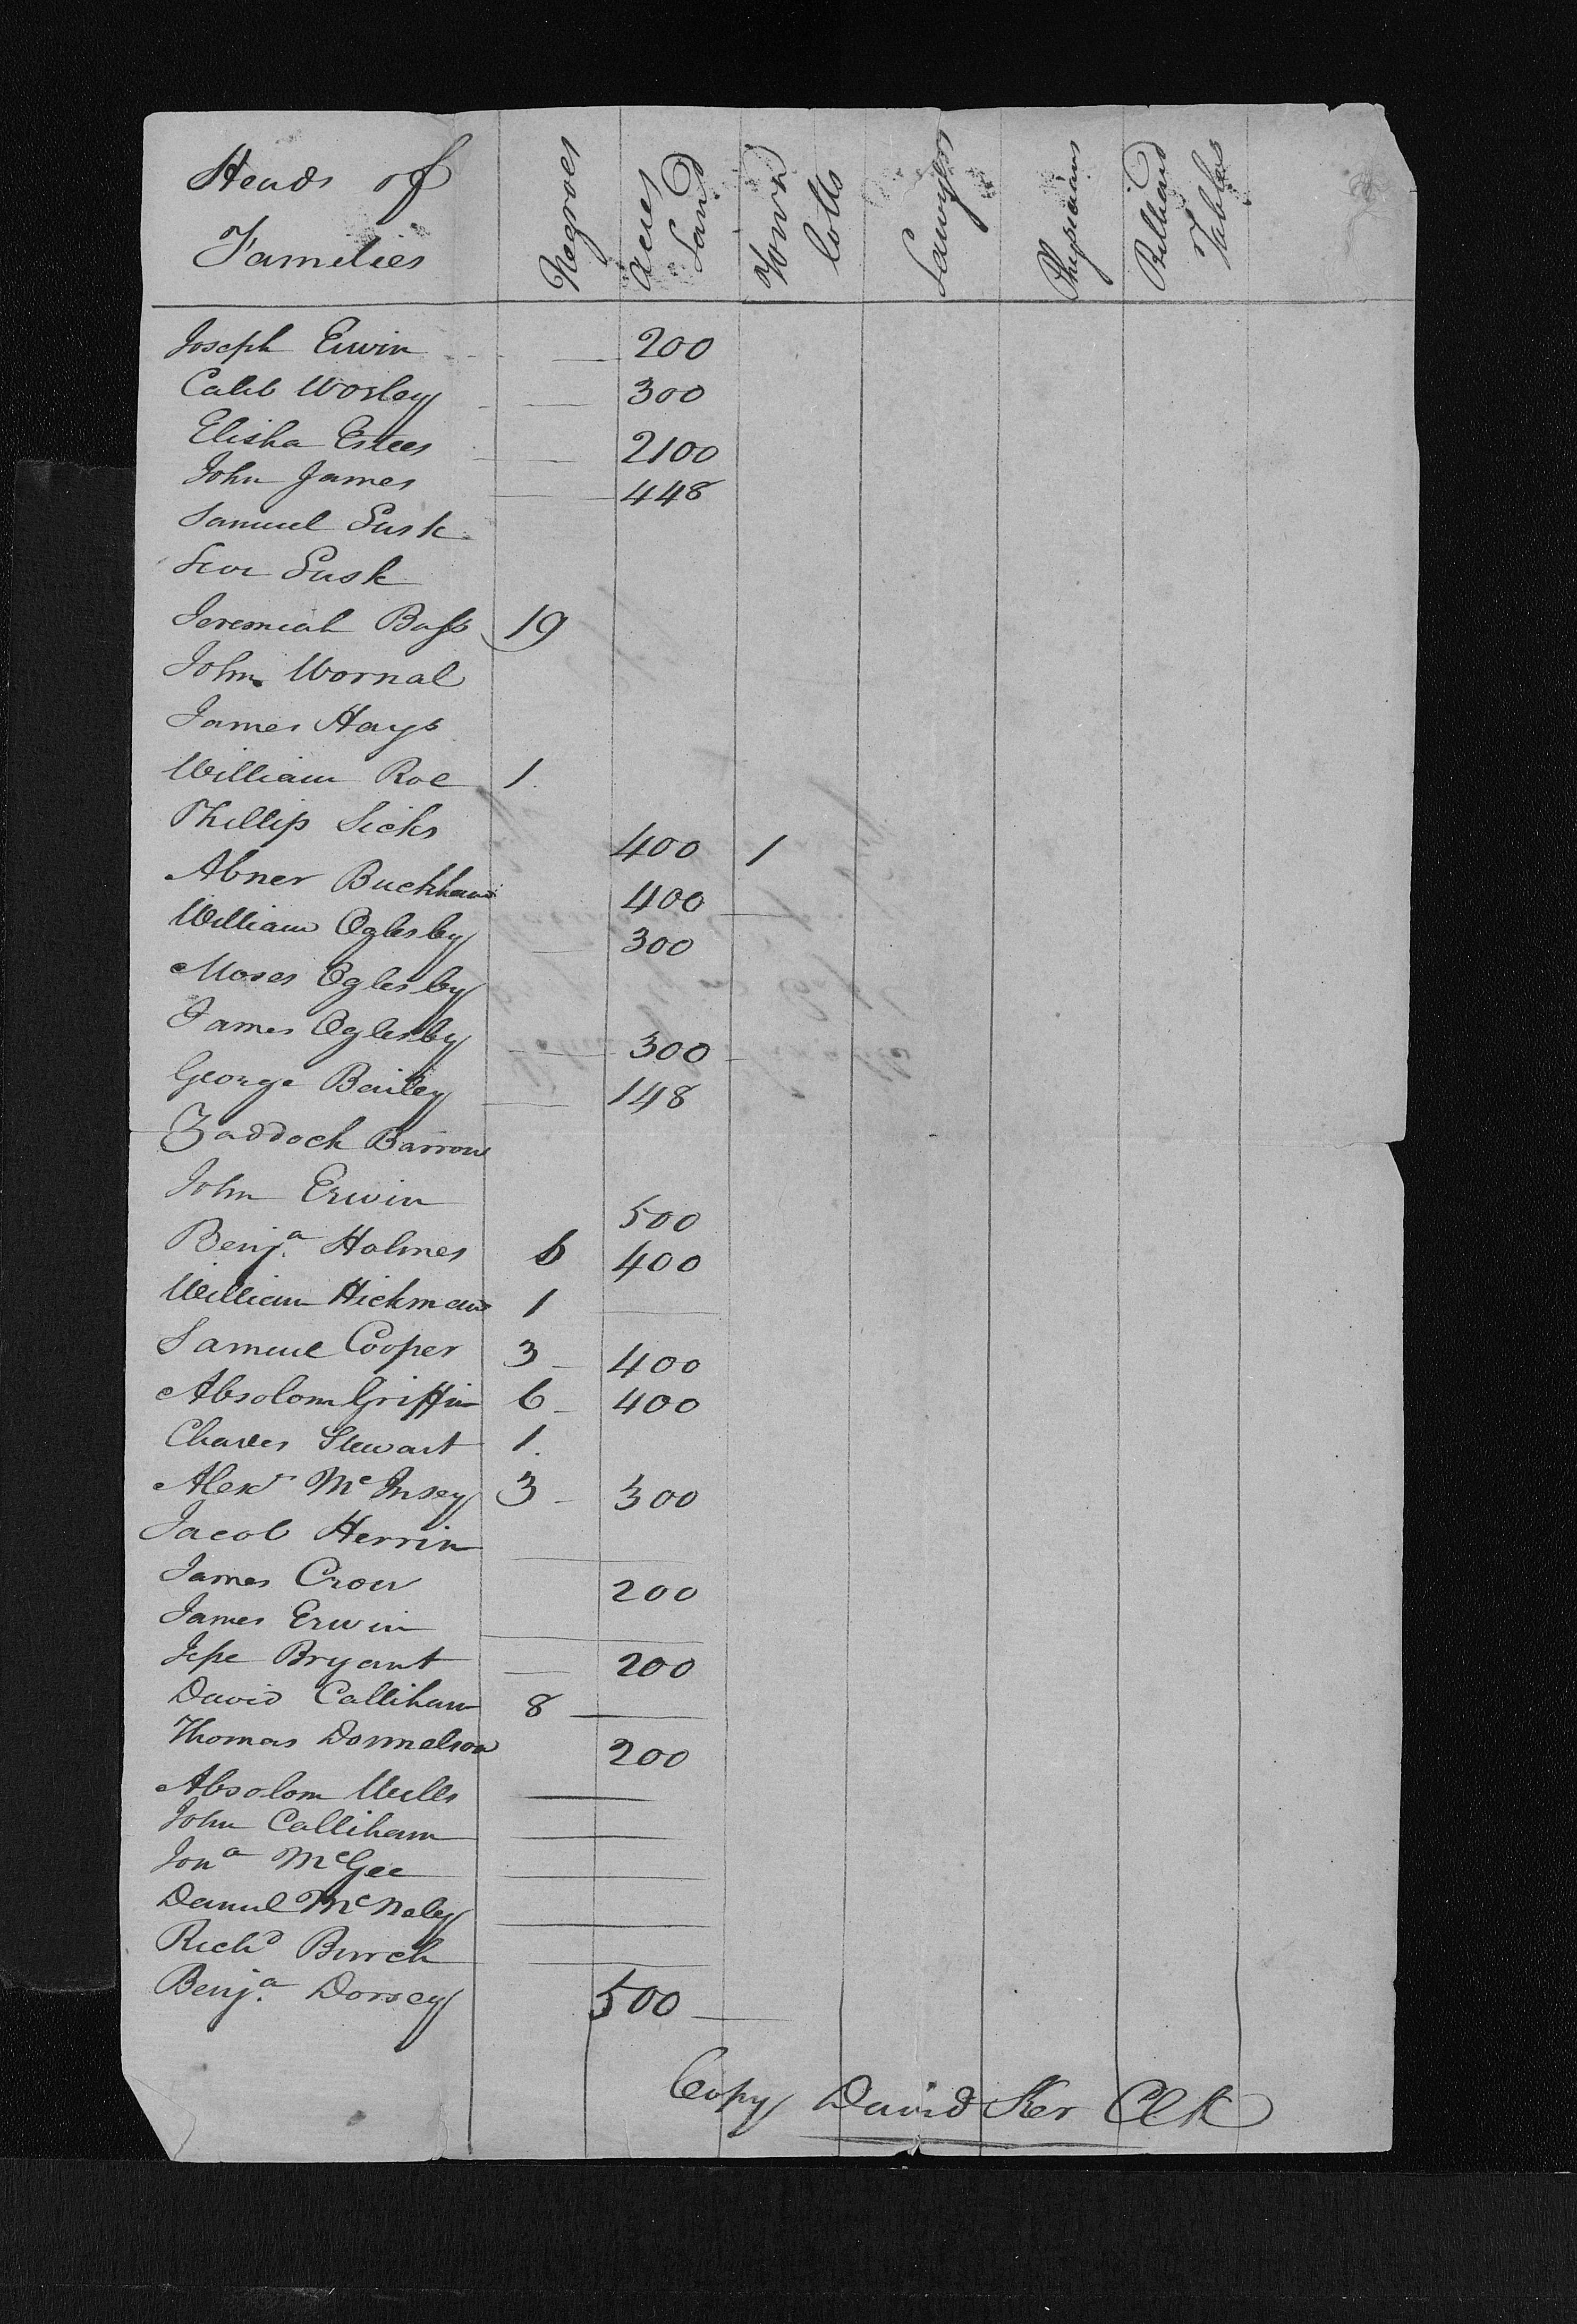 Heads of Families | Negroes | Acres Land | Town lotts | Lawyers | Physicians | Billiard Tables
Joseph Erwin — 200
Caleb Worley — 300
Elisha Estees — 2100
John James — 448
Samuel Lusk
Levi Lusk
Jeremiah Bass 19
John Wornal
James Hays
William Roe 1
Phillip Sicks 400 1
Abner Buckhanan 400 —
William Oglesby — 300
Moses Oglesby
James Oglesby — 300 —
George Bailey — 148
Zaddock Barrow
John Erwin 500
Benja. Holmes 6 400
William Hickman 1 —
Samuel Cooper 3 — 400
Absolom Griffin 6 — 400
Charles Stewart 1.
Alexr McInsey 3 — 300
Jacob Herrin —
James Crow 200
James Erwin —
Jesse Bryant — 200
David Calliham 8 —
Thomas Donnelson 200
Absolom Wells —
John Calliham —
Jona McGee —
Daniel McNeley —
Richd Burch —
Benja. Dorsey 500 —
Copy David Ker Clk